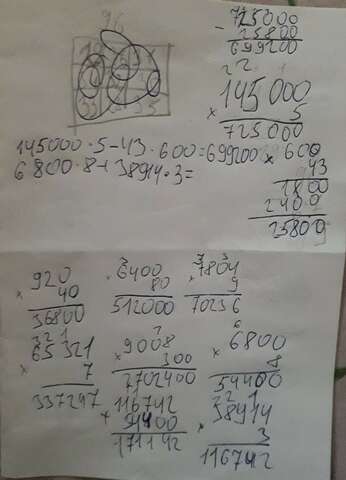 96
725000
- 25800
699200
2 2
145000
× 5
725000
145000·5-43·600=699200
6800·8+38914·3=
× 600
43
1800
2400
25800
920
× 40
36800
3
× 6400
80
512000
7 3
× 7804
9
70236
3 2 1
65321
× 7
337247
9008
× 300
2702400
6
× 6800
8
54400
116742
+ 54400
171142
2 2 1
38914
× 3
116742